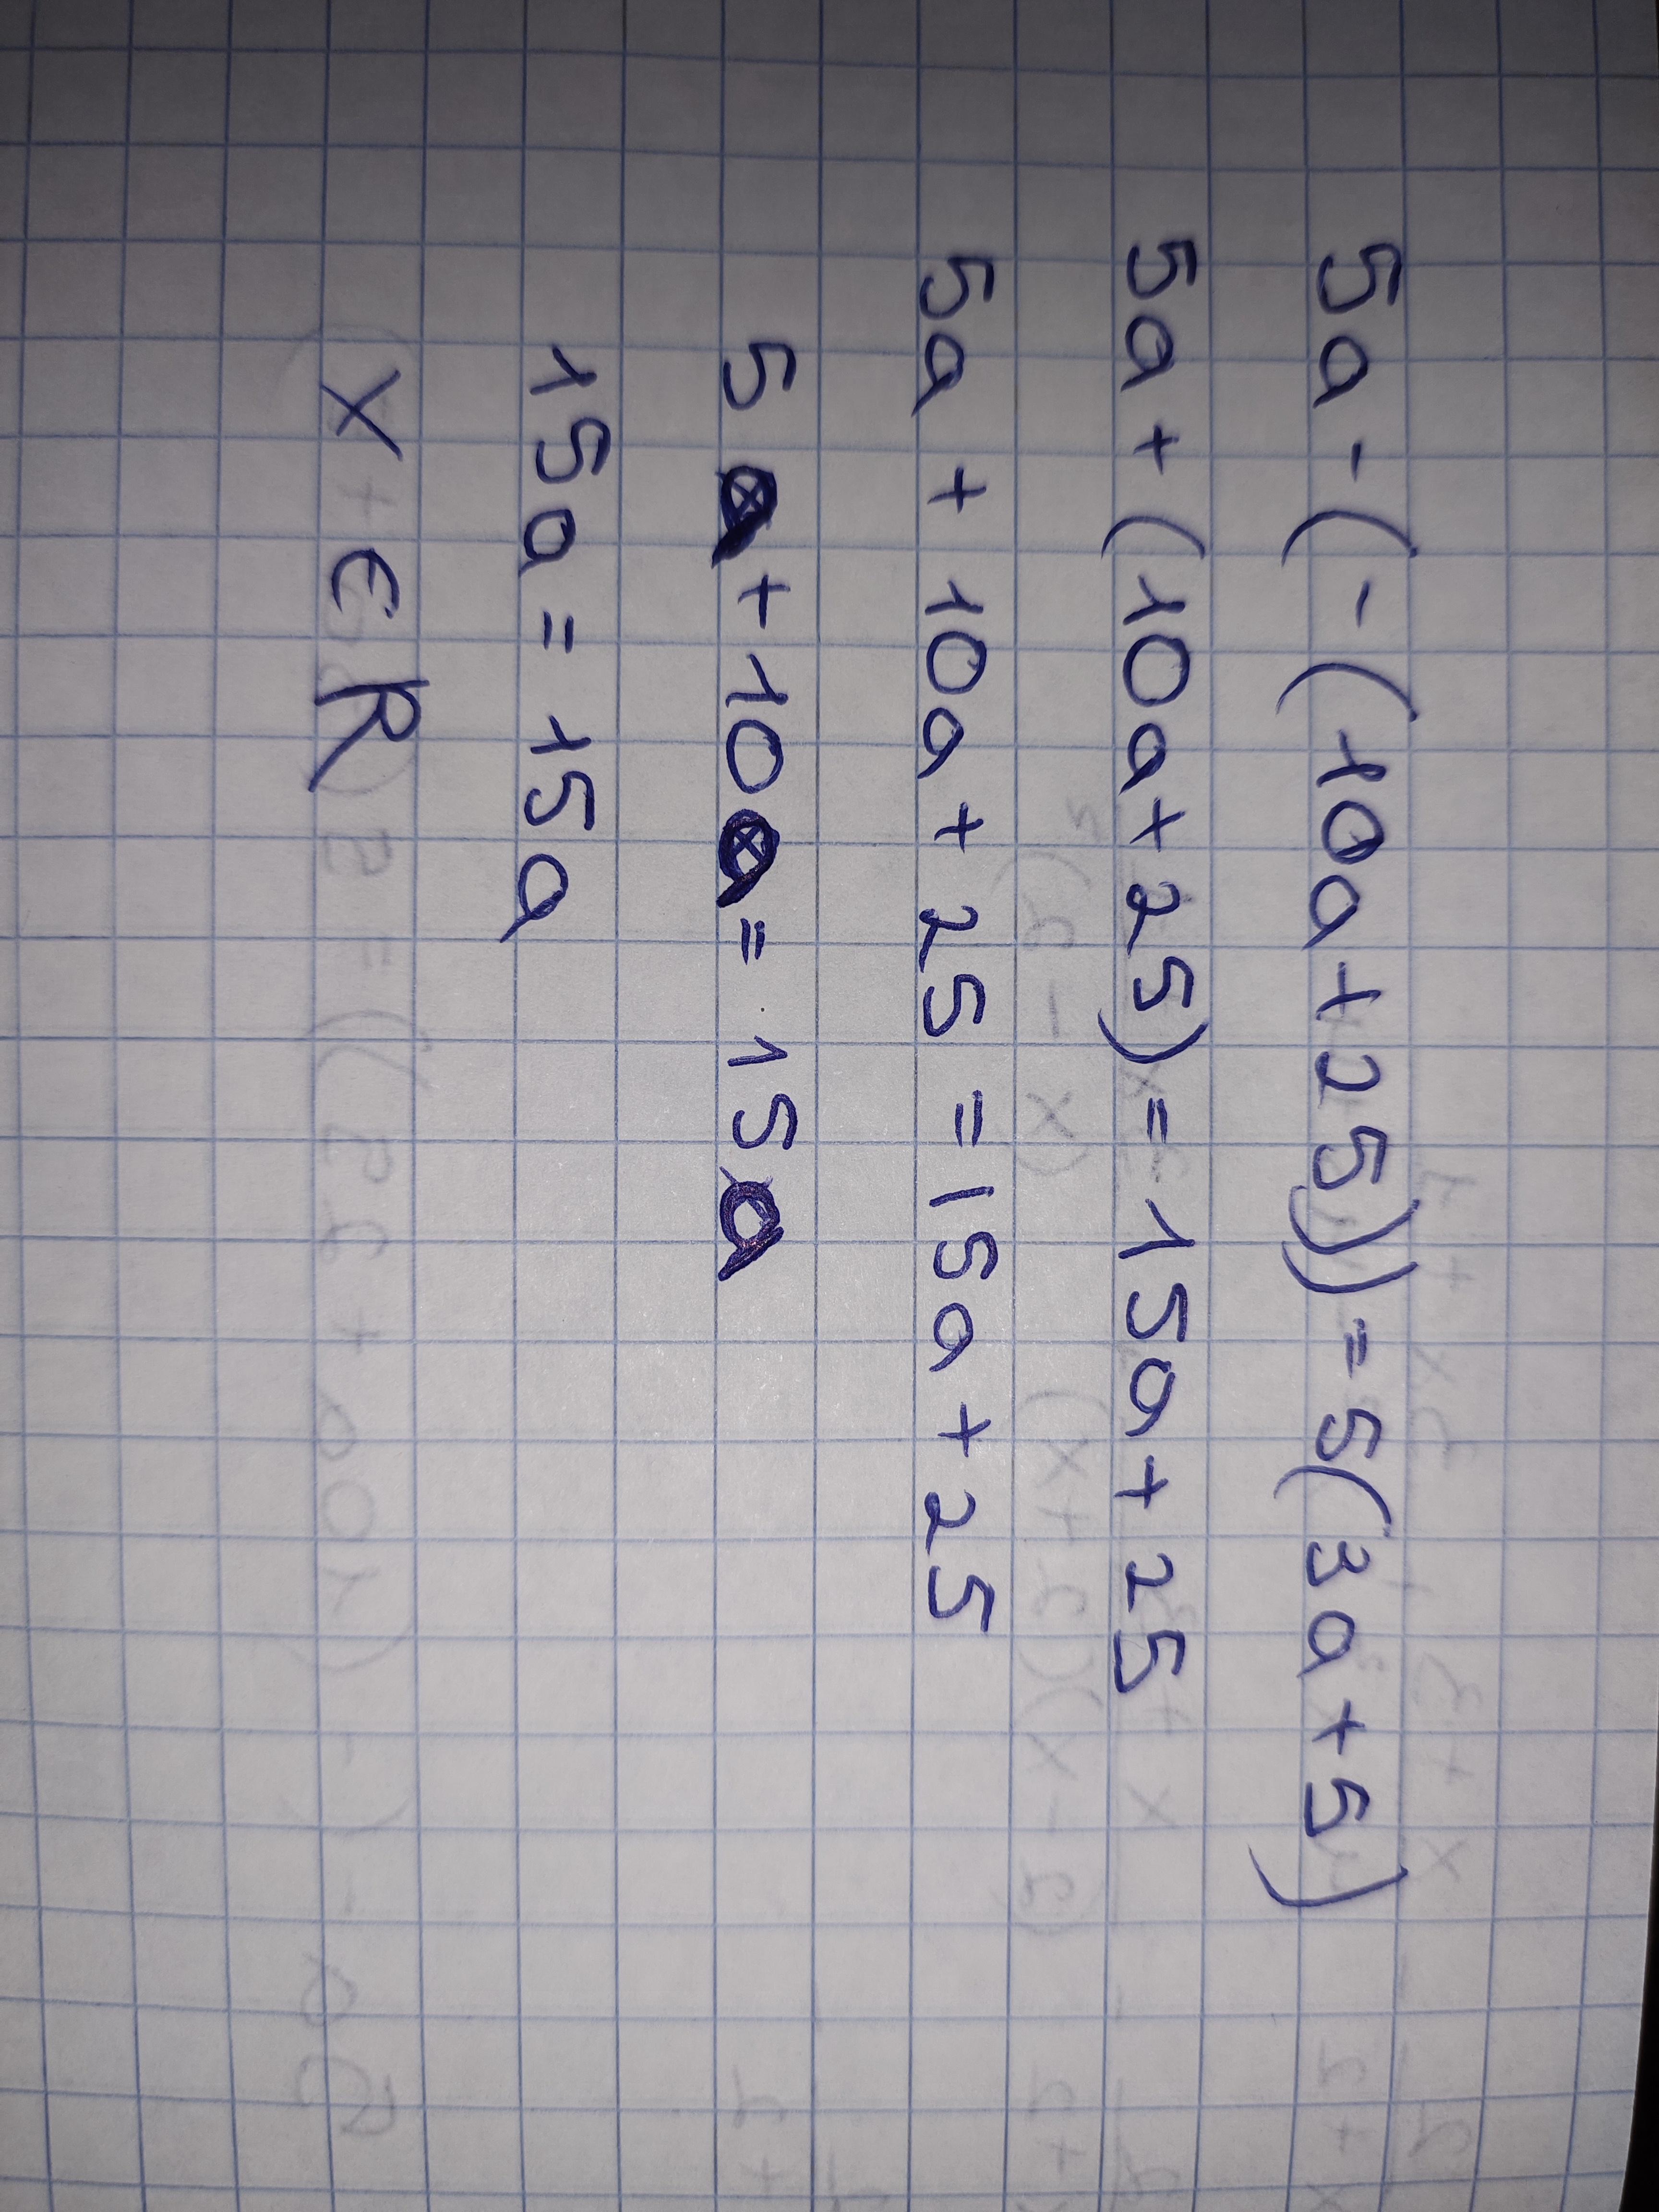 5a - (- (10a + 25)) = 5(3a + 5)
5a + (10a + 25) = 15a + 25
5a + 10a + 25 = 15a + 25
5a + 10a = 15a
15a = 15a
x ∈ R